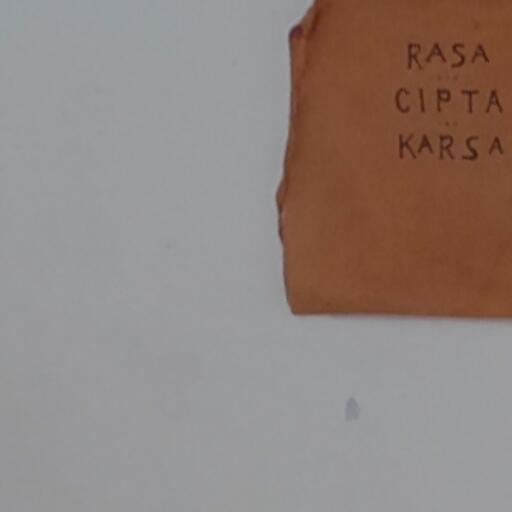 RASA
CIPTA
KARSA